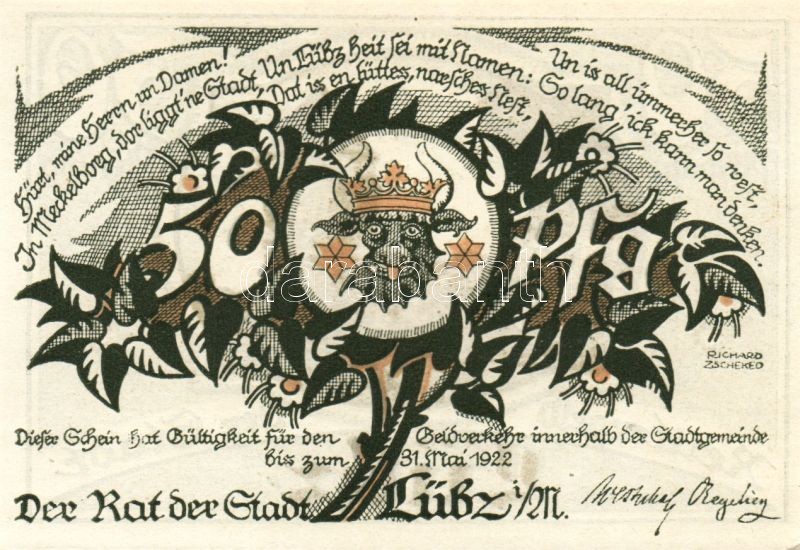 Hürt, mine Herrn un Damen!
In Meckelborg, dor liggt 'ne Stadt,
Un Lübz heit sei mit Namen:
Dat is en lüttes, naesches Nest,
Un is all ümmerher so west,
So lang' ick kann man denken.
50 Pfg
darabanth
RICHARD
ZSCHEKED
Dieser Schein hat Gültigkeit für den Geldverkehr innerhalb der Stadtgemeinde
bis zum 31. Mai 1922
Der Rat der Stadt Lübz i/M.